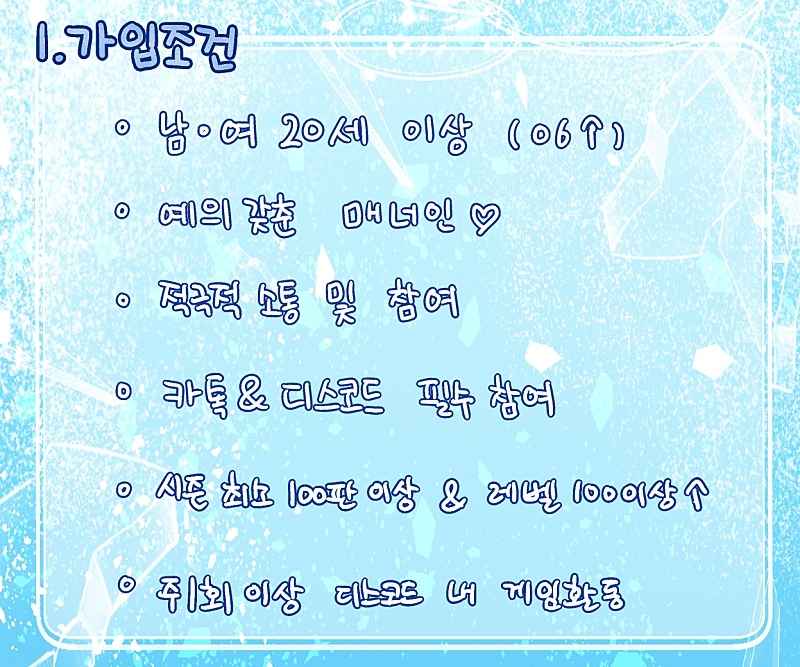 1.가입조건
◦ 남◦여 20세 이상 (06↑)
◦ 예의 갖춘 매너인♡
◦ 적극적 소통 및 참여
◦ 카톡&디스코드 필수 참여
◦ 시즌 최소 100판 이상 & 레벨 100이상↑
◦ 주1회 이상 디스코드 내 게임활동